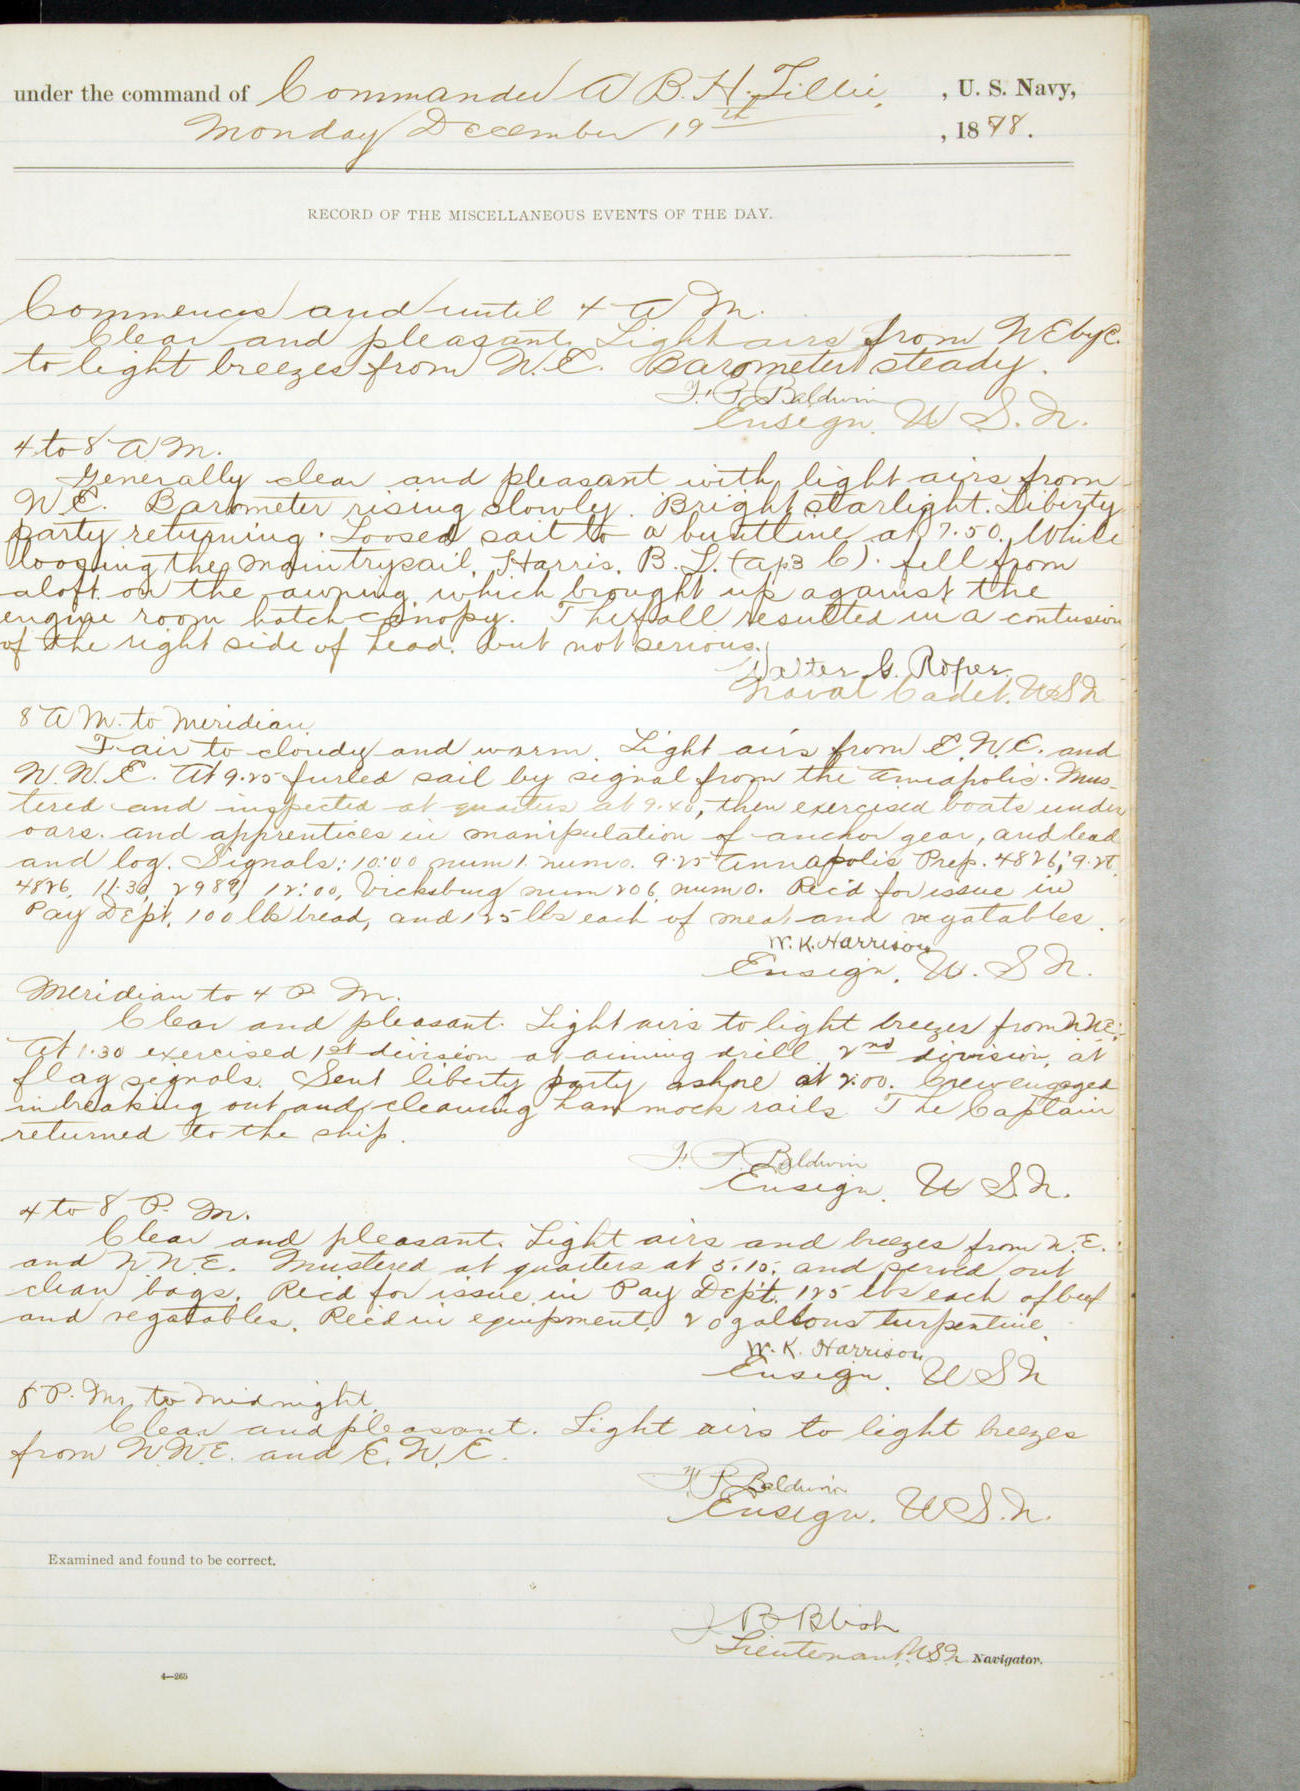 under the command of Commander A B. H. Lillie, , U. S. Navy,
Monday December 19th , 1898.
RECORD OF THE MISCELLANEOUS EVENTS OF THE DAY.
Commences and until 4 A M.
Clear and pleasant. Light airs from NEbyE.
to light breezes from N.E. Barometer steady.
F. P. Baldwin
Ensign. U. S. N.
4 to 8 A M.
Generally clear and pleasant with light airs from
N E. Barometer rising slowly. Bright starlight. Liberty
party returning. Loosed sail to a buntline at 7.50. While
loosing the main trysail, Harris, B. L. (ap3 C). fell from
aloft on the awning, which brought up against the
engine room hatch canopy. The fall resulted in a contusion
of the right side of head. but not serious.
Walter G. Roper
Naval Cadet. U S N
8 A M. to Meridian
Fair to cloudy and warm. Light airs from E.N.E. and
N.N.E. At 9.25 furled sail by signal from the Annapolis. Mus-
tered and inspected at quarters at 9.40, then exercised boats under
oars. and apprentices in manipulation of anchor gear, and lead
and log. Signals: 10:00 num 1. num 0. 9.25 Annapolis Prep. 4826; 9.28
4826, 11.30, 2989, 12:00, Vicksburg num 206, num 0. Rec'd for issue in
Pay Dept, 100 lbs bread, and 125 lbs each of meat and vegatables.
W. K. Harrison
Ensign, U. S N.
Meridian to 4 P. M.
Clear and pleasant. Light airs to light breezes from NNE.
At 1.30 exercised 1st division at aiming drill, 2nd division, at
flag signals. Sent liberty party ashore at 2:00. Crew engaged
in breaking out and cleaning hammock rails. The Captain
returned to the ship.
F. P. Baldwin
Ensign. U S. N.
4 to 8 P. M.
Clear and pleasant. Light airs and breezes from N.E.
and N N.E. Mustered at quarters at 5.15. and served out
clean bags. Rec'd for issue in Pay Dept. 125 lbs each of beef
and vegatables. Rec'd in equipment, 20 gallons turpentine.
W. K. Harrison
Ensign. U S N
8 P. M. to Midnight.
Clear and pleasant. Light airs to light breezes
from N.N.E. and E.N.E.
F. P. Baldwin
Ensign. U S. N.
Examined and found to be correct.
J B Blish
Lieutenant, U.S.N. Navigator.
4—265